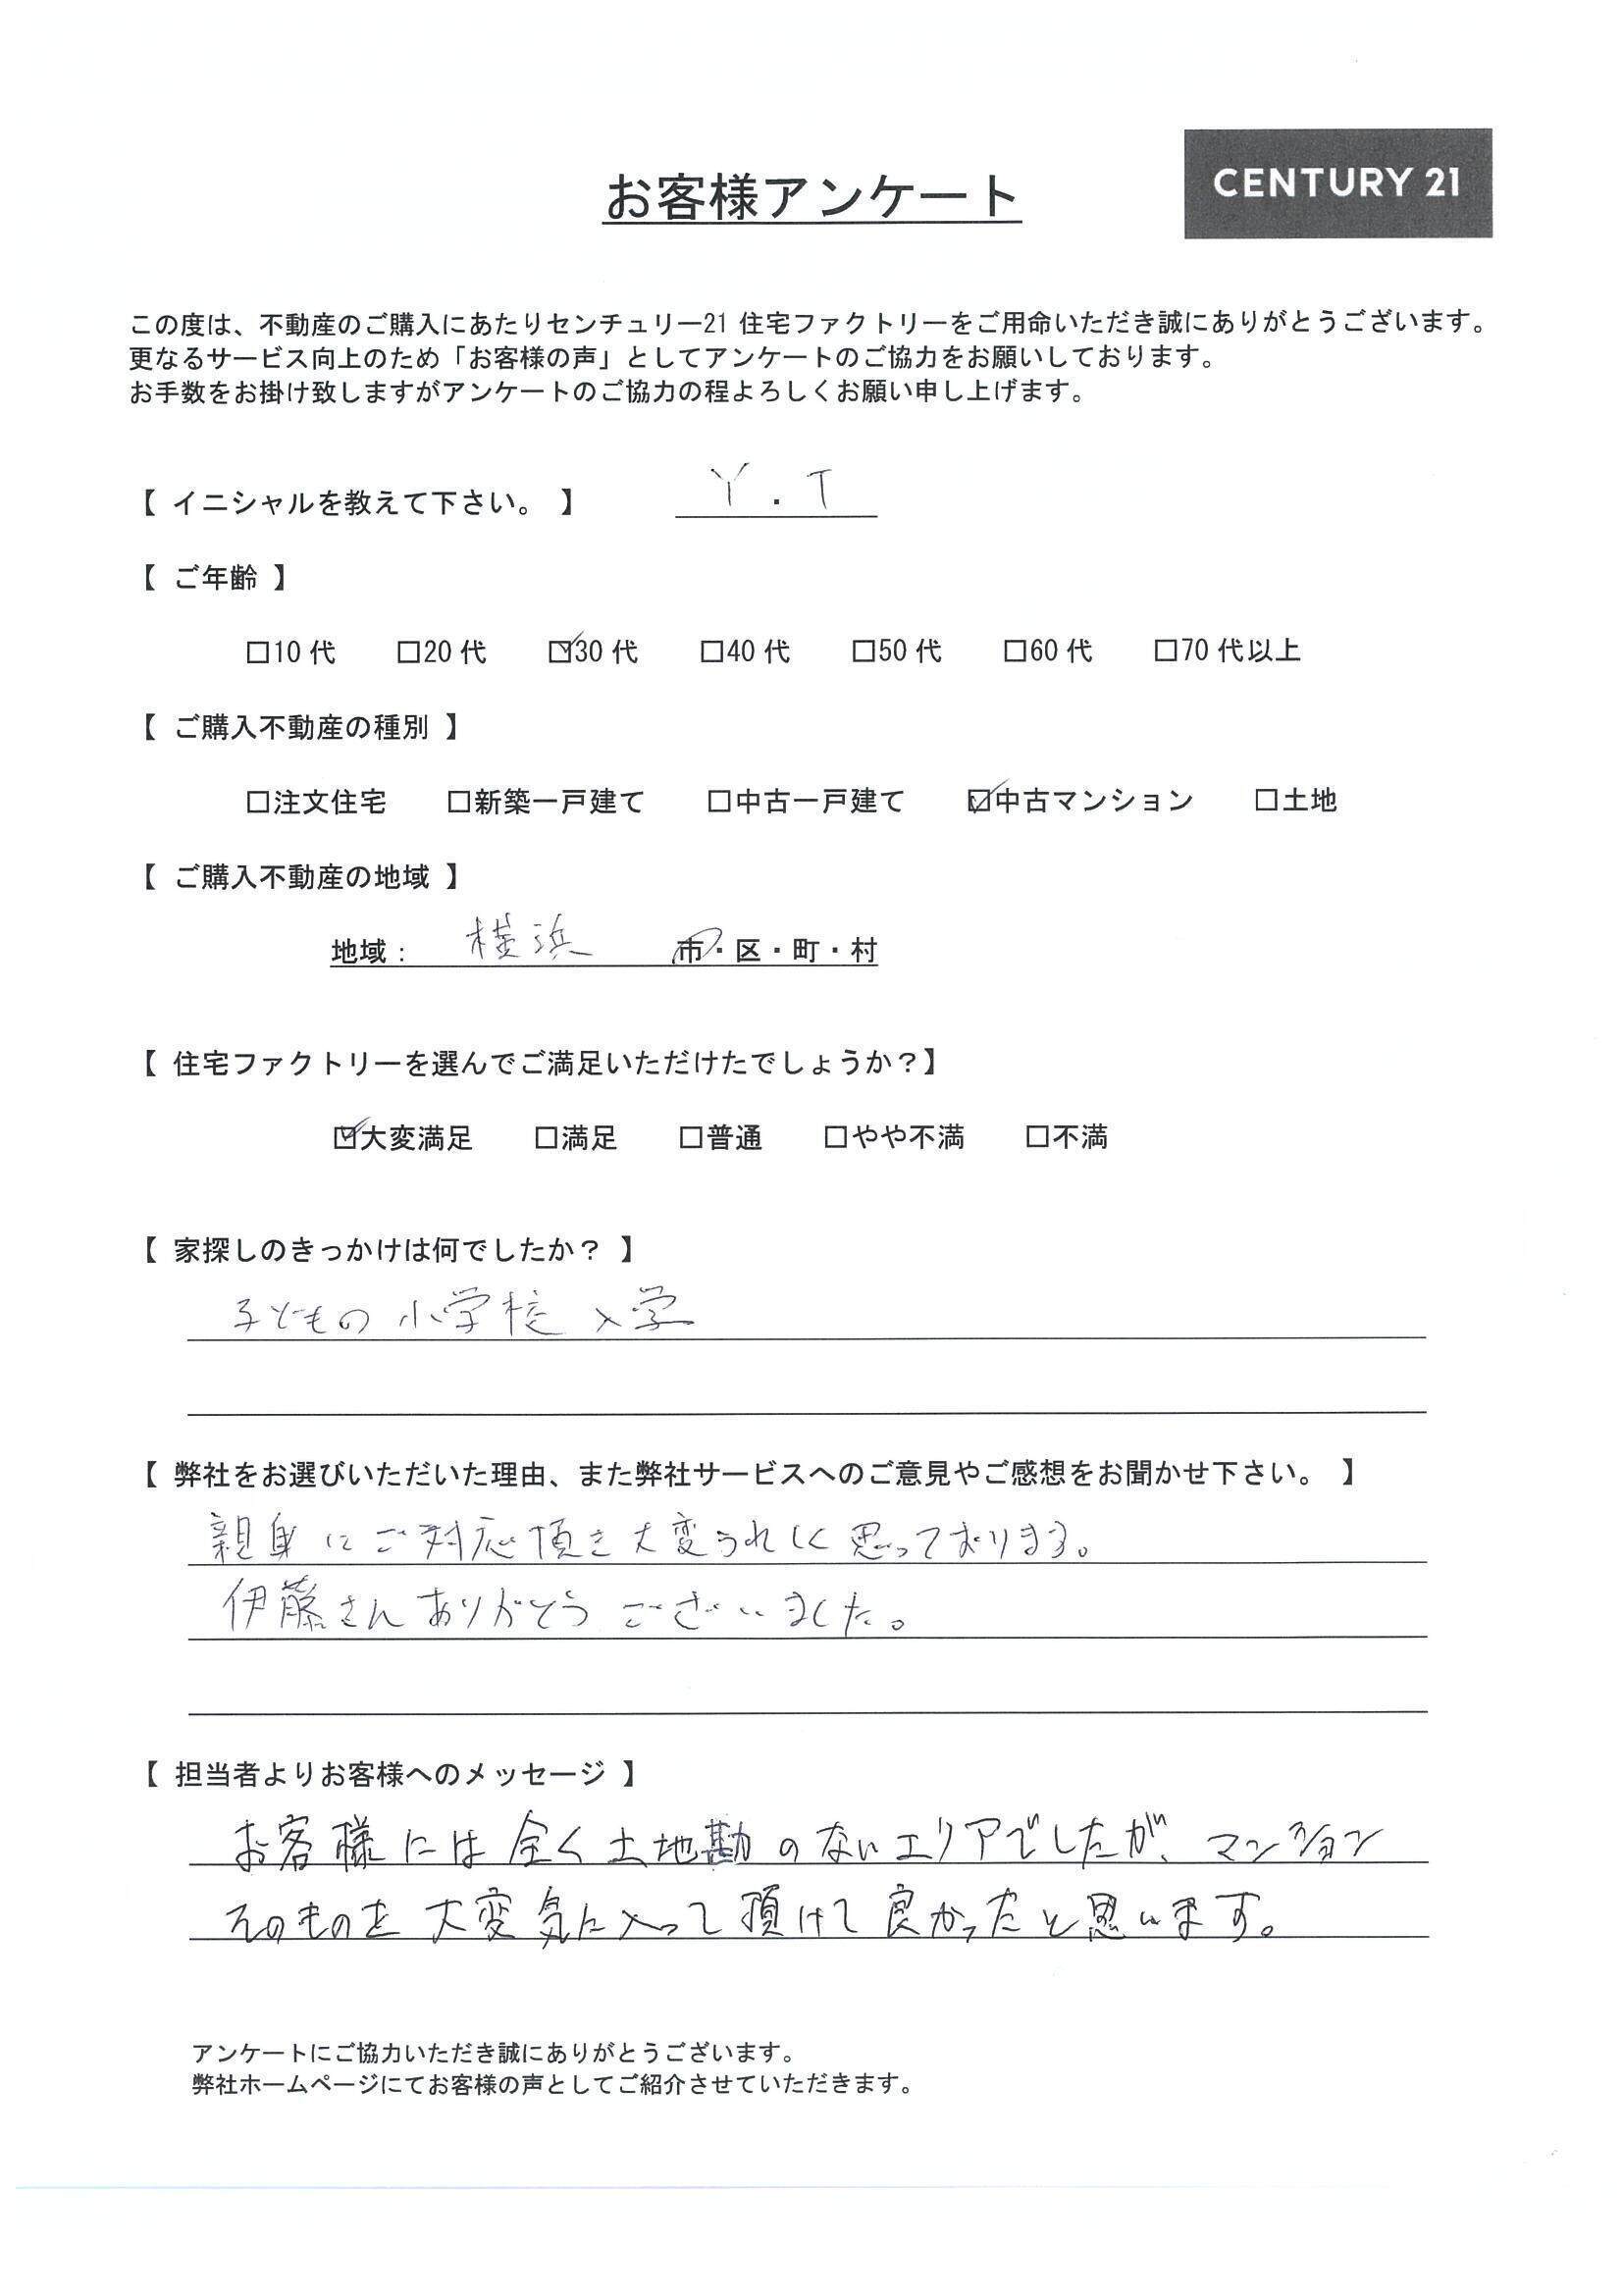 お客様アンケート
CENTURY 21
この度は、不動産のご購入にあたりセンチュリー21 住宅ファクトリーをご用命いただき誠にありがとうございます。
更なるサービス向上のため「お客様の声」としてアンケートのご協力をお願いしております。
お手数をお掛け致しますがアンケートのご協力の程よろしくお願い申し上げます。
【 イニシャルを教えて下さい。 】 Y . T
【 ご年齢 】
□10 代 □20 代 ☑30 代 □40 代 □50 代 □60 代 □70 代以上
【 ご購入不動産の種別 】
□注文住宅 □新築一戸建て □中古一戸建て ☑中古マンション □土地
【 ご購入不動産の地域 】
地域： 横浜 市・区・町・村
【 住宅ファクトリーを選んでご満足いただけたでしょうか？】
☑大変満足 □満足 □普通 □やや不満 □不満
【 家探しのきっかけは何でしたか？ 】
子どもの小学校入学
【 弊社をお選びいただいた理由、また弊社サービスへのご意見やご感想をお聞かせ下さい。 】
親身にご対応頂き大変うれしく思っております。
伊藤さんありがとうございました。
【 担当者よりお客様へのメッセージ 】
お客様には全く土地勘のないエリアでしたが、マンション
そのものを大変気に入って頂けて良かったと思います。
アンケートにご協力いただき誠にありがとうございます。
弊社ホームページにてお客様の声としてご紹介させていただきます。